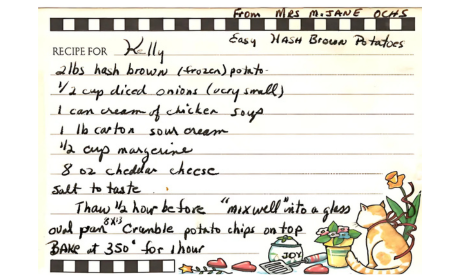 From Mrs M. Jane Ochs
Easy Hash Brown Potatoes
RECIPE FOR Kelly
2 lbs hash brown (frozen) potato.
1/2 cup diced onions (very small)
1 can cream of chicken soup
1 lb carton sour cream
1/2 cup margerine
8 oz cheddar cheese
salt to taste
Thaw 1/2 hour before "mix well" into a glass
8x13
oval pan Crumble potato chips on top
BAKE at 350° for 1 hour
JOY